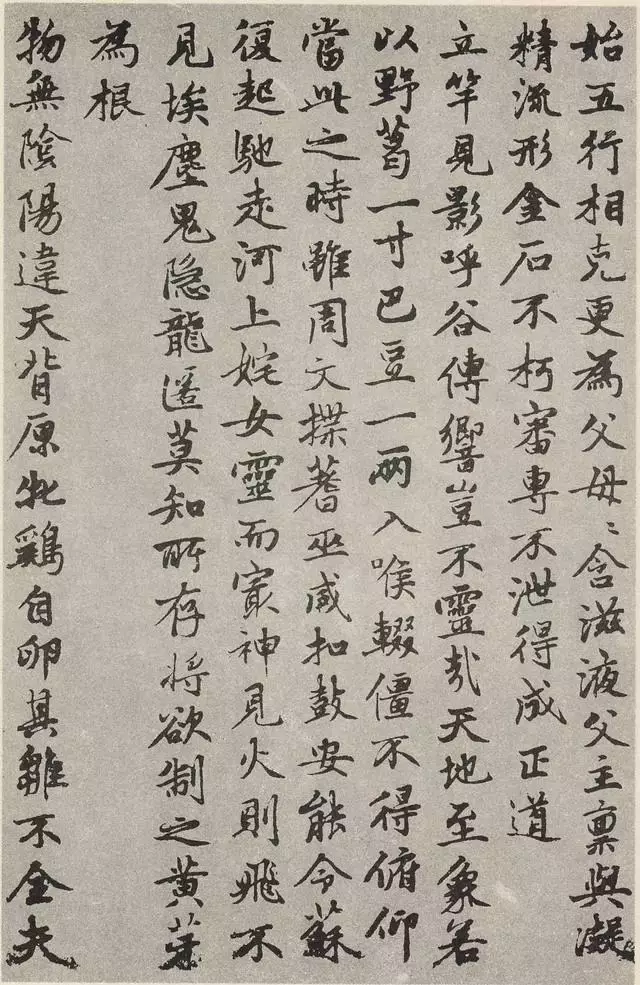 始五行相克更為父母〻含滋液父主禀與凝
精流形金石不朽審專不泄得成正道
立竿見影呼谷傳響豈不靈哉天地至象若
以野葛一寸巴豆一兩入喉輟僵不得俯仰
當此之時雖周文揲蓍巫咸扣鼓安能令蘇
復起馳走河上姹女靈而冣神見火則飛不
見埃塵鬼隐龍匿莫知所存将欲制之黄芽
為根
物無陰陽違天背原牝鷄自卵其雛不全夫